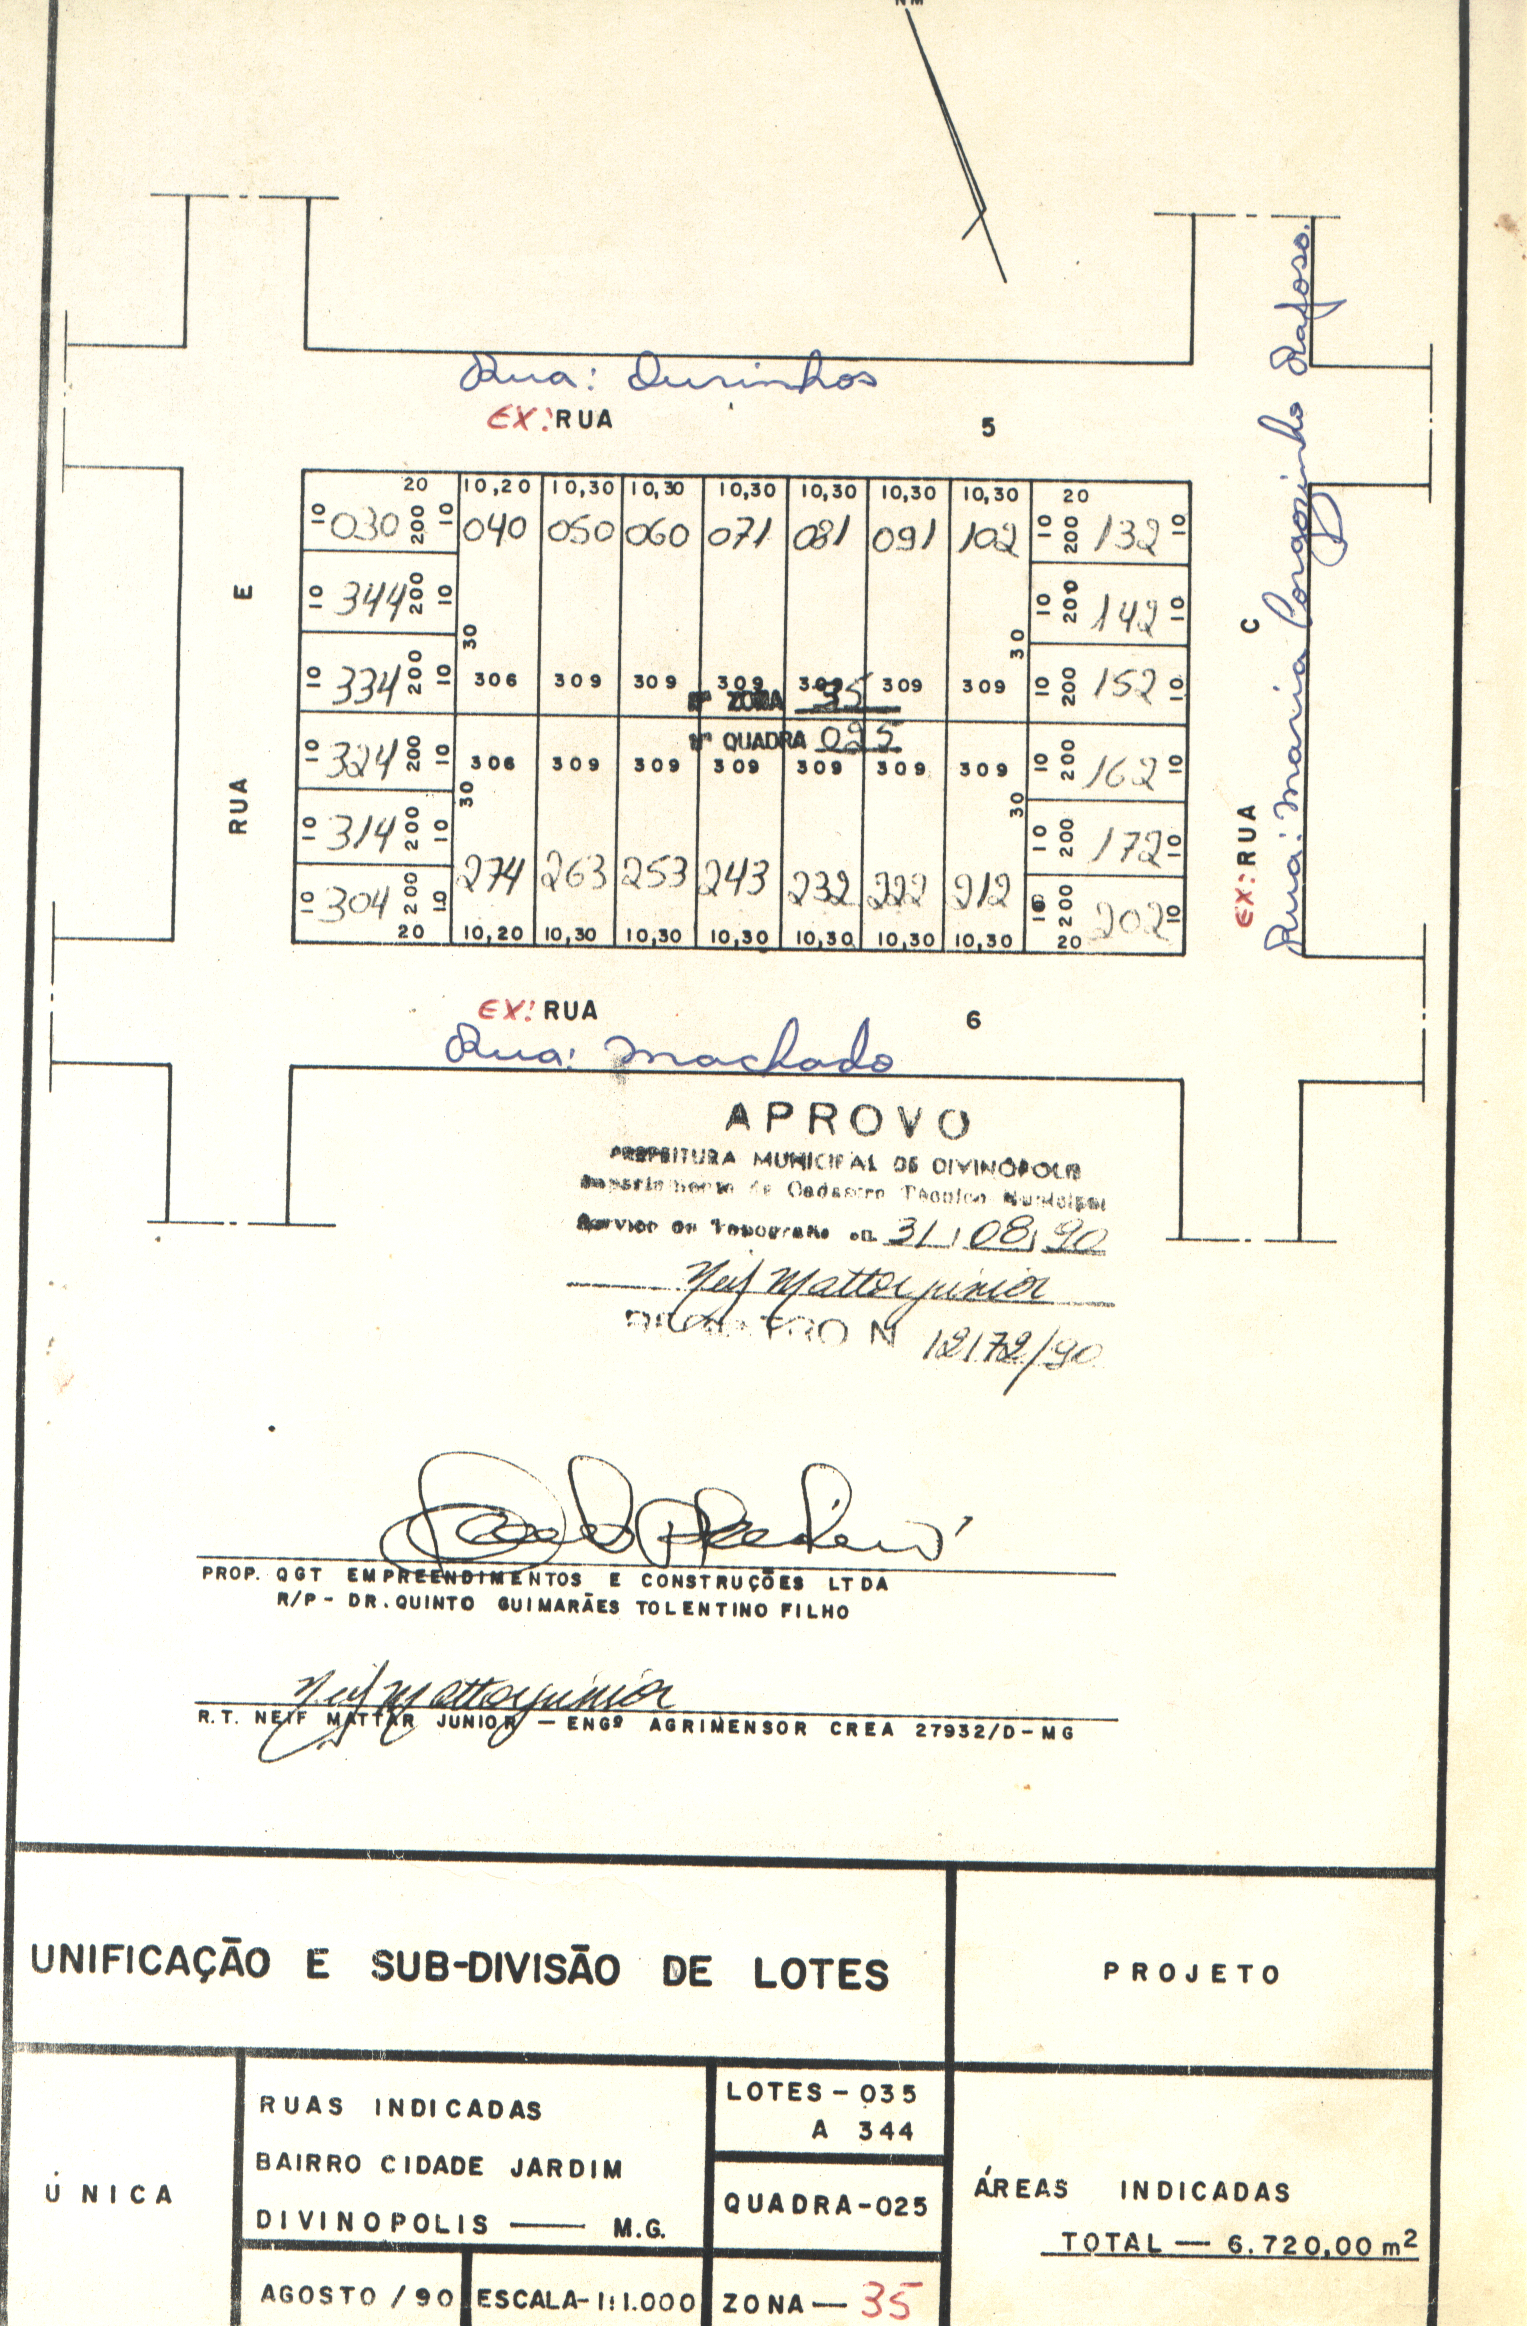 NM
Rua: Ourinhos
EX: RUA 5
20 10,20 10,30 10,30 10,30 10,30 10,30 10,30 20
10 030 200 10 040 050 060 071 081 091 102 10 200 132 10
10 344 200 10 10 200 142 10
30 30
10 334 200 10 306 309 309 309 309 309 309 10 200 152 10
Nº ZONA 35
Nº QUADRA 025
10 324 200 10 306 309 309 309 309 309 309 10 200 162 10
30 30
10 314 200 10 10 200 172 10
10 304 200 10 274 263 253 243 232 222 212 10 200 202 10
20 10,20 10,30 10,30 10,30 10,30 10,30 10,30 20
RUA E
EX: RUA C
Rua: Maria Corgosinho Rafoso.
EX: RUA 6
Rua: Machado
APROVO
PREFEITURA MUNICIPAL DE DIVINÓPOLIS
Departamento de Cadastro Técnico Municipal
Servico de Topografia em 31/08/90
Neif Mattar junior
REGISTRO N 12172/90
PROP. QGT EMPREENDIMENTOS E CONSTRUÇÕES LTDA
R/P - DR. QUINTO GUIMARÃES TOLENTINO FILHO
Neif Mattar junior
R.T. NEIF MATTAR JUNIOR — ENGº AGRIMENSOR CREA 27932/D-MG
UNIFICAÇÃO E SUB-DIVISÃO DE LOTES
PROJETO
ÚNICA
RUAS INDICADAS
BAIRRO CIDADE JARDIM
DIVINOPOLIS — M.G.
LOTES - 035
A 344
QUADRA-025
ÁREAS INDICADAS
TOTAL — 6.720,00 m²
AGOSTO / 90
ESCALA- 1:1.000
ZONA — 35